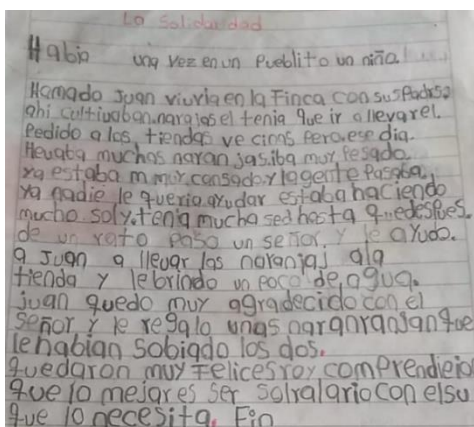 La Solidaridad
Habia una vez en un Pueblito un niña
Hamado Juan viuvia en la Finca con sus Padrso
ahi cultivaban naranjas el tenia que ir a llevar el
Pedido a las tiendas ve cinas Pero ese dia.
Hevaba muchas naran jas. iba muy Pesado
ya estaba m muy cansado y la gente Pasaba,
ya nadie le queria ayudar estaba haciendo
mucho sol y. tenia mucha sed hasta que despues.
de un rato Paso un señor, y le ayudo.
a Juan a llevar las naranjas a la
tienda y le brindo un Poco de agua.
juan quedo muy agradecido con el
señor y le regalo unas naranranjan que
le habian sobiado los dos.
quedaron muy Felices roy comprendieio
que lo mejar es ser solralario con elsu
que lo necesita. Fin